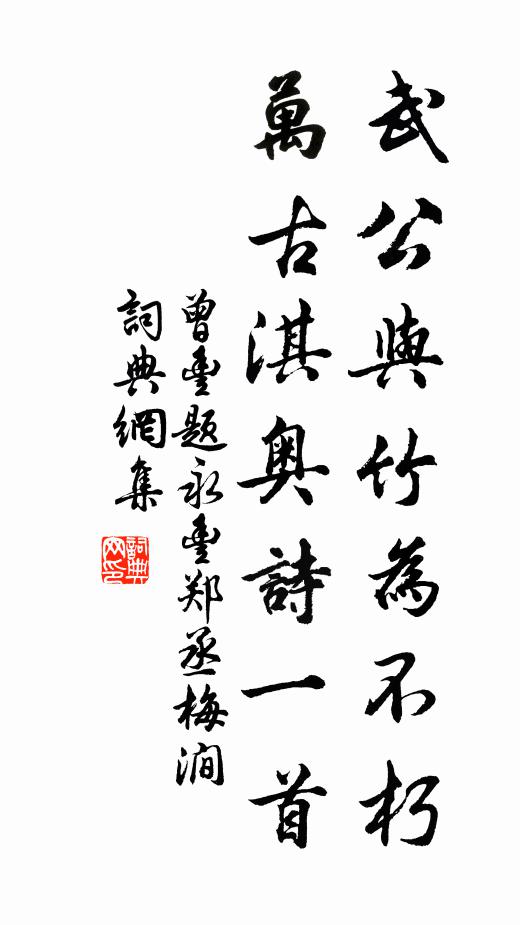 武公與竹為不朽
萬古淇奧詩一首
曾豐題永豐郑丞梅澗
詞典網集
詞典網印